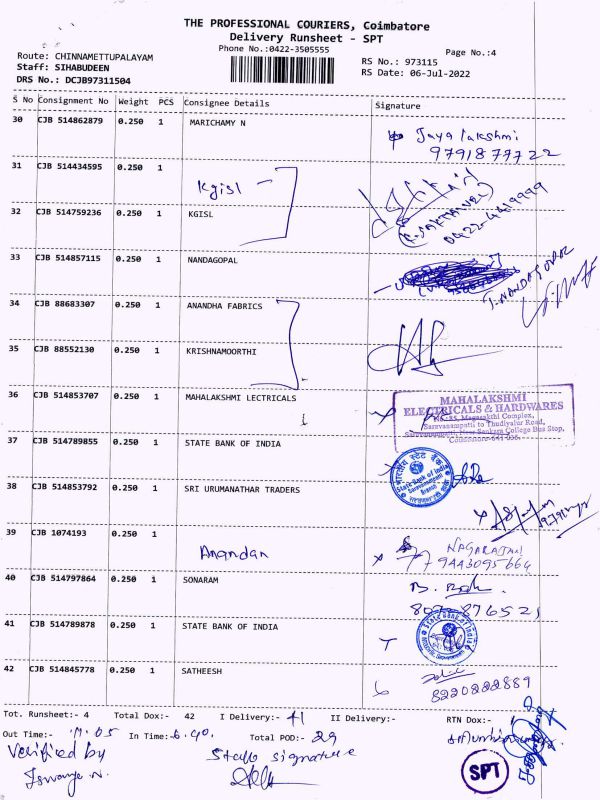 THE PROFESSIONAL COURIERS, Coimbatore
Delivery Runsheet - SPT
Phone No.:0422-3505555
Page No.:4
Route: CHINNAMETTUPALAYAM
Staff: SIHABUDEEN
DRS No.: DCJB97311504
RS No.: 973115
RS Date: 06-Jul-2022
S No Consignment No Weight PCS Consignee Details Signature
30 CJB 514862879 0.250 1 MARICHAMY N
Jaya lakshmi
9791877722
31 CJB 514434595 0.250 1
Kgisl
32 CJB 514759236 0.250 1 KGISL
0422-4419999
33 CJB 514857115 0.250 1 NANDAGOPAL
34 CJB 88683307 0.250 1 ANANDHA FABRICS
35 CJB 88552130 0.250 1 KRISHNAMOORTHI
36 CJB 514853707 0.250 1 MAHALAKSHMI LECTRICALS
MAHALAKSHMI
ELECTRICALS & HARDWARES
Complex,
Saravanampatti to Thudiyalur Road,
Sankara College Bus Stop,
37 CJB 514789855 0.250 1 STATE BANK OF INDIA
भारतीय स्टेट बैंक
State Bank of India
Saravanampatti
Branch
38 CJB 514853792 0.250 1 SRI URUMANATHAR TRADERS
39 CJB 1074193 0.250 1
Anandan
NAGARAJAN
9443095664
40 CJB 514797864 0.250 1 SONARAM
41 CJB 514789878 0.250 1 STATE BANK OF INDIA
State Bank of India
42 CJB 514845778 0.250 1 SATHEESH
8220222889
Tot. Runsheet:- 4 Total Dox:- 42 I Delivery:- 41 II Delivery:- RTN Dox:-
Out Time:- 11.05 In Time:- 6.40. Total POD:- 29
Verified by
Staff signature
SPT